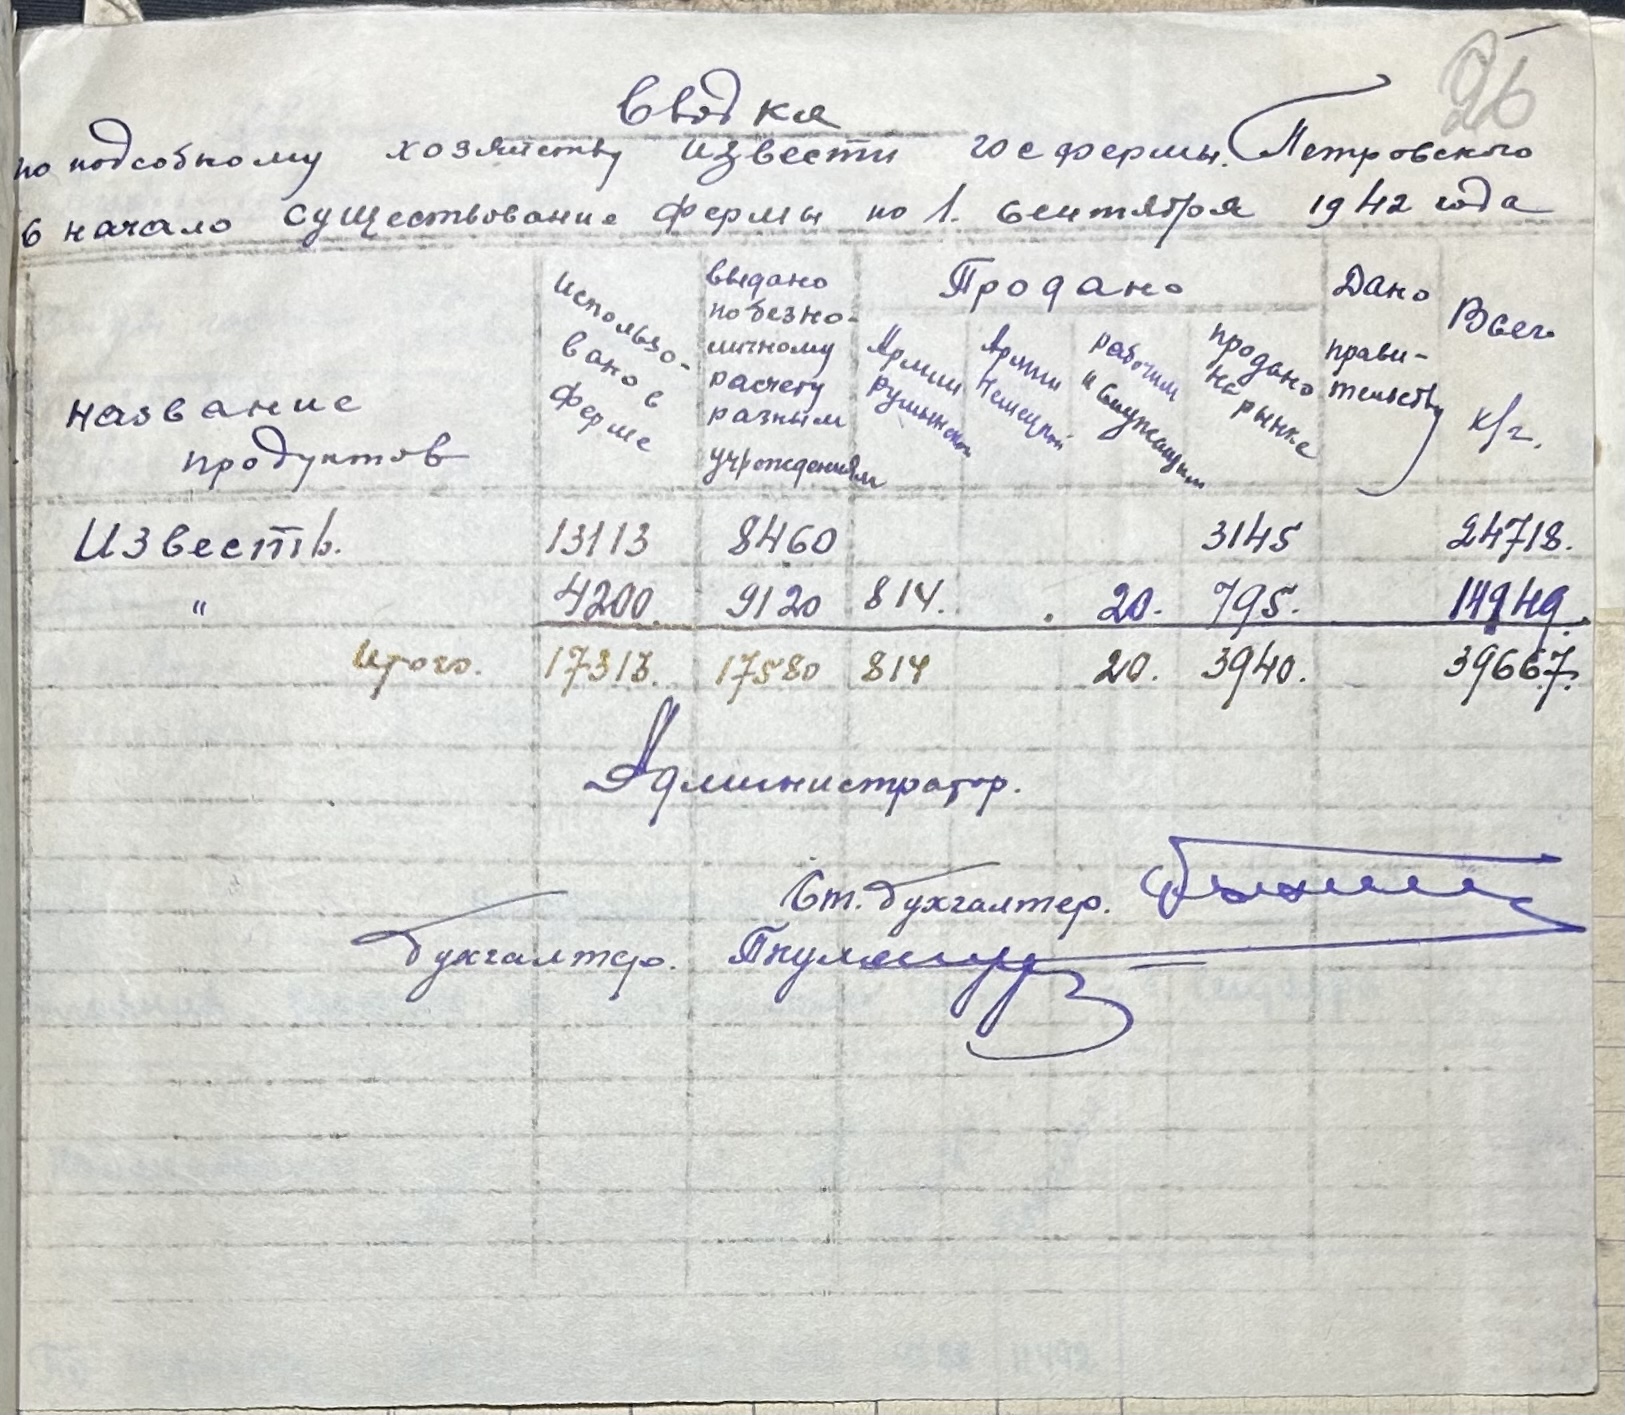 26
Сводка
по подсобному хозяйству извести госфермы Петровского
с начало существование фермы по 1. Сентября 1942 года
Название продуктов
Использовано в ферме
Выдано по безно-
личному
расчету
разным
учреждениям
Продано
Армии румынской
Армии немецкой
рабочим и служащим
продано на рынке
Дано
прави-
тельству
Всего
к/г.
Известь. 13113 8460 3145 24718.
" 4200. 9120 814. 20. 795. 14949.
Итого. 17313. 17580 814 20. 3940. 39667.
Администратор.
Ст. бухгалтер.
бухгалтер.